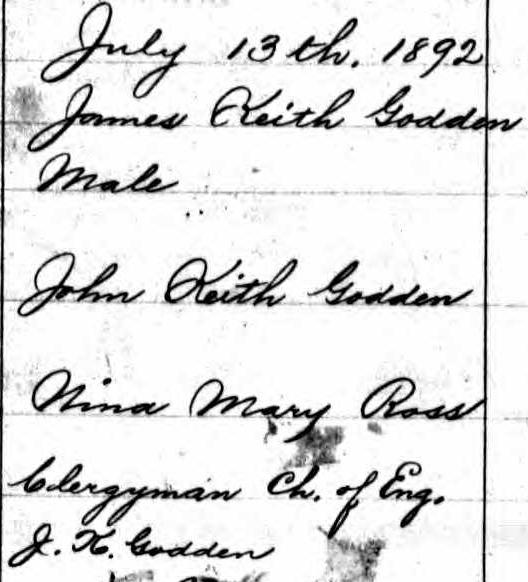 July 13th. 1892
James Keith Godden
Male
John Keith Godden
Nina Mary Ross
Clergyman Ch. of Eng.
J. K. Godden